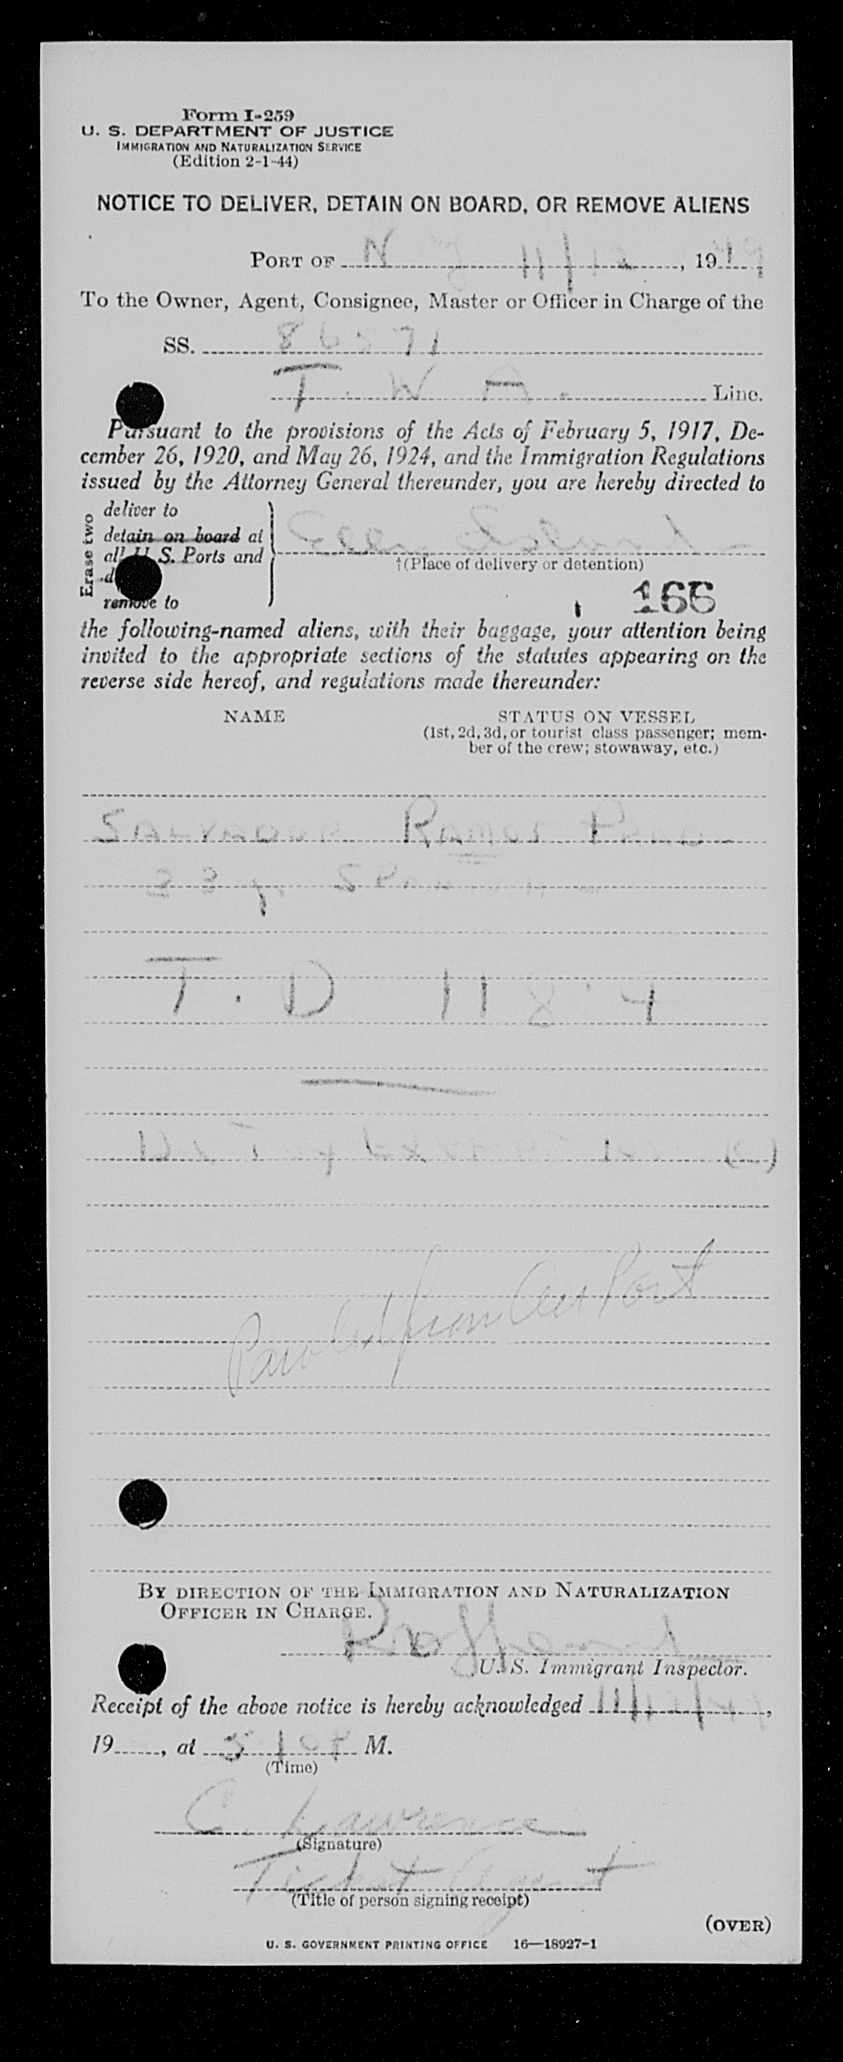 Form I-259
U. S. DEPARTMENT OF JUSTICE
IMMIGRATION AND NATURALIZATION SERVICE
(Edition 2-1-44)
NOTICE TO DELIVER, DETAIN ON BOARD, OR REMOVE ALIENS
PORT OF N Y 11/12, 1949
To the Owner, Agent, Consignee, Master or Officer in Charge of the
SS. 86571
T. W A. Line.
Pursuant to the provisions of the Acts of February 5, 1917, De-
cember 26, 1920, and May 26, 1924, and the Immigration Regulations
issued by the Attorney General thereunder, you are hereby directed to
Erase two
deliver to
detain on board at
all U. S. Ports and
remove to
Ellis Island
(Place of delivery or detention)
166
the following-named aliens, with their baggage, your attention being
invited to the appropriate sections of the statutes appearing on the
reverse side hereof, and regulations made thereunder:
NAME
STATUS ON VESSEL
(1st, 2d, 3d, or tourist class passenger; mem-
ber of the crew; stowaway, etc.)
Ramos
T. D 11
Paroled from Air Port
BY DIRECTION OF THE IMMIGRATION AND NATURALIZATION
OFFICER IN CHARGE.
U. S. Immigrant Inspector.
Receipt of the above notice is hereby acknowledged
19, at M.
(Time)
C. Lawrence
(Signature)
Ticket Agent
(Title of person signing receipt)
(OVER)
U. S. GOVERNMENT PRINTING OFFICE 16—18927-1